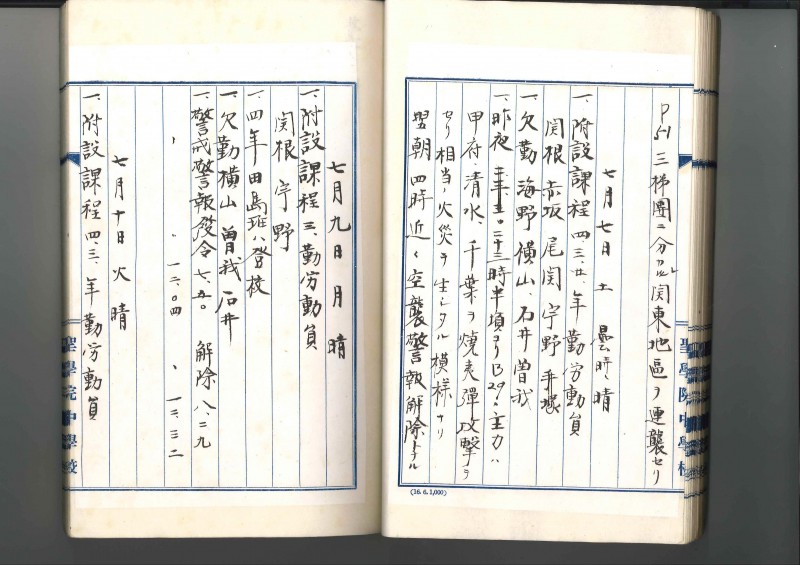 P51三梯團ニ分カレ関東地區ヲ連襲セリ
七月七日 土 曇時々晴
一、附設課程四、三、二、年勤労動員
関根 赤坂 尾関 宇野 手塚
一、欠勤 海野 横山、石井 曽我
一、昨夜 二十三時半頃ヨリB29、主力ハ
甲府、清水、千葉ヲ焼夷彈攻撃ヲ
セリ相当ノ火災ヲ生ジタル模様ナリ
翌朝 四時近く空襲警報解除トナル
(16. 6. 1,000)
聖學院中學校
七月九日 月 晴
一、附設課程三、勤労動員
関根 宇野
一、四年田島班ハ登校
一、欠勤 横山 曽我 石井
一、警戒警報發令 七、五〇 解除 八、二九
、 、 一二、〇四 、 一二、三二
七月十日 火 晴
一、附設課程四、三、年勤労動員
聖學院中學校